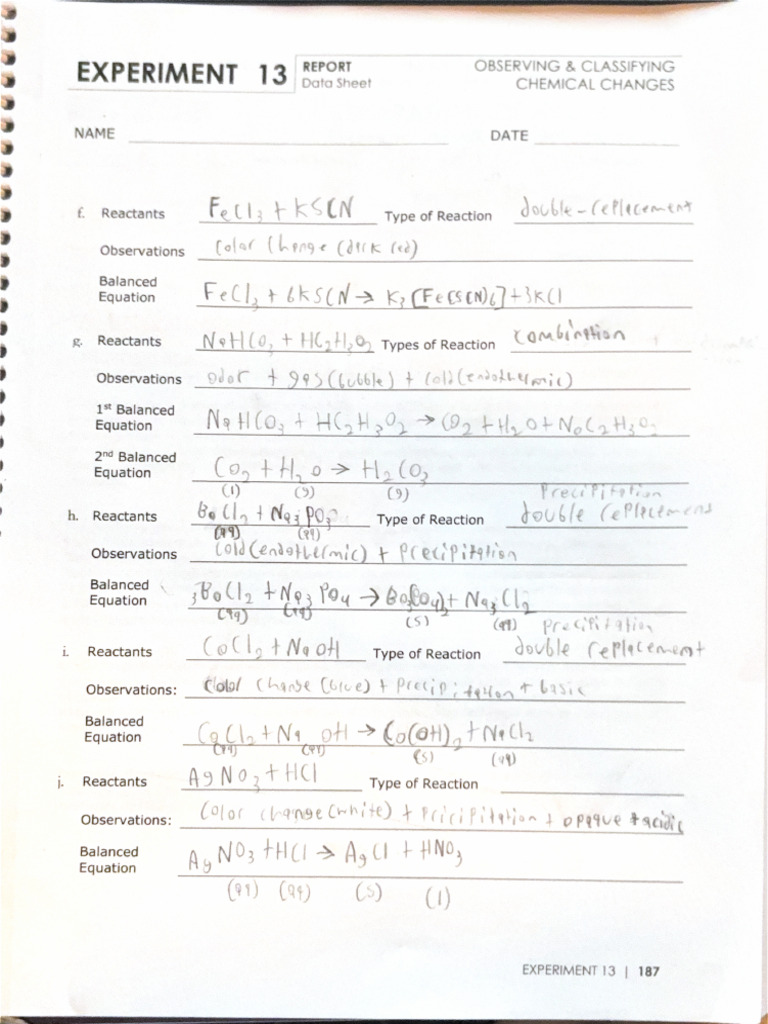 EXPERIMENT 13 REPORT Data Sheet OBSERVING & CLASSIFYING CHEMICAL CHANGES
NAME DATE
f. Reactants FeCl3 + KSCN Type of Reaction double-replacement
Observations Color Change (dark red)
Balanced Equation FeCl3 + 6KSCN → K3[Fe(SCN)6] + 3KCl
g. Reactants NaHCO3 + HC2H3O2 Types of Reaction Combination
Observations odor + gas (bubble) + cold (endothermic)
1st Balanced Equation NaHCO3 + HC2H3O2 → CO2 + H2O + NaC2H3O2
2nd Balanced Equation CO2 + H2O → H2CO3
(l) (g) (g) Precipitation
h. Reactants BaCl2 + Na3PO3 Type of Reaction double replacement
(aq) (aq)
Observations cold (endothermic) + Precipitation
Balanced Equation 3BaCl2 + Na3PO4 → Ba3(PO4)2 + Na3Cl2
(aq) (aq) (s) (aq) precipitation
i. Reactants CoCl2 + NaOH Type of Reaction double replacement
Observations: Color Change (blue) + Precipitation + basic
Balanced Equation CoCl2 + Na OH → Co(OH)2 + NaCl2
(aq) (aq) (s) (aq)
j. Reactants AgNO3 + HCl Type of Reaction
Observations: Color change (white) + Pricipitation + opaque + acidic
Balanced Equation AgNO3 + HCl → AgCl + HNO3
(aq) (aq) (s) (l)
EXPERIMENT 13 | 187